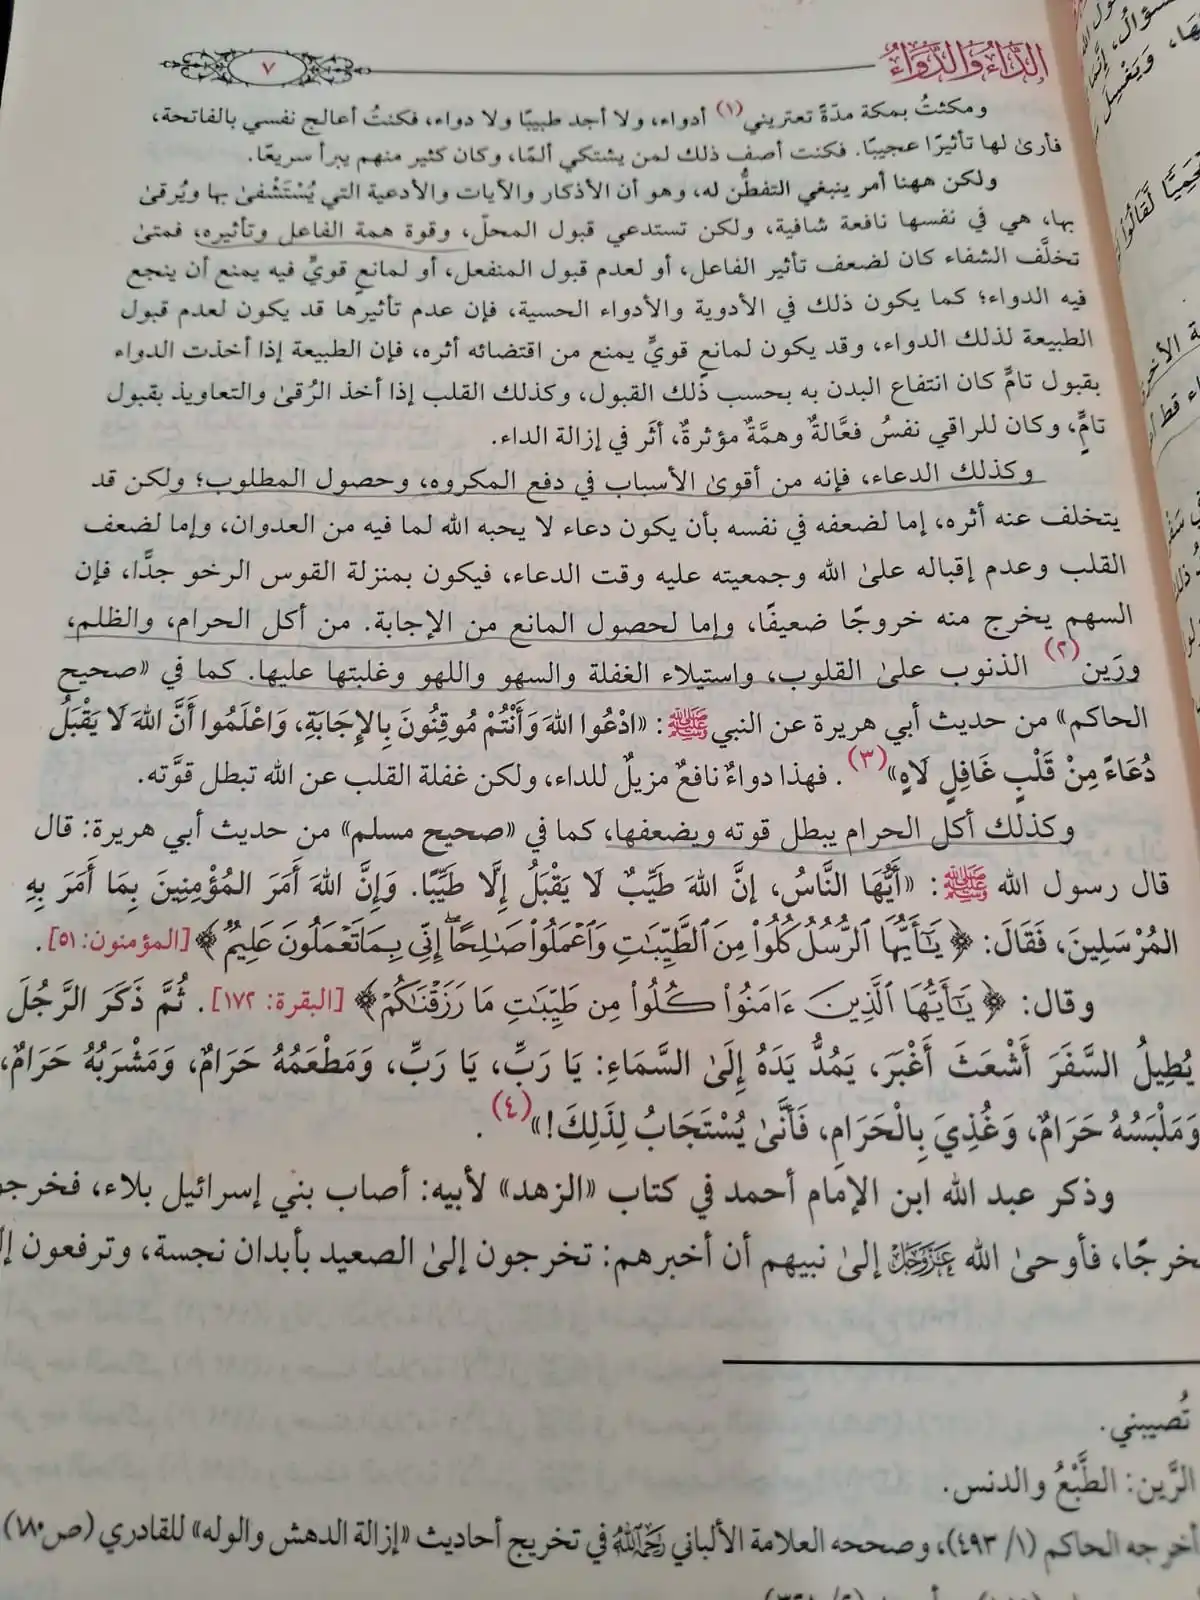 الدَّاءُ وَالدَّوَاءُ
٧
ومكثتُ بمكة مدّةً تعتريني(١) أدواء، ولا أجد طبيبًا ولا دواء، فكنتُ أعالج نفسي بالفاتحة،
فأرىٰ لها تأثيرًا عجيبًا. فكنت أصف ذلك لمن يشتكي ألمًا، وكان كثير منهم يبرأ سريعًا.
ولكن ههنا أمر ينبغي التفطُّن له، وهو أن الأذكار والآيات والأدعية التي يُسْتَشْفىٰ بها ويُرقىٰ
بها، هي في نفسها نافعة شافية، ولكن تستدعي قبول المحلّ، وقوة همة الفاعل وتأثيره، فمتىٰ
تخلَّف الشفاء كان لضعف تأثير الفاعل، أو لعدم قبول المنفعل، أو لمانعٍ قويٍّ فيه يمنع أن ينجع
فيه الدواء؛ كما يكون ذلك في الأدوية والأدواء الحسية، فإن عدم تأثيرها قد يكون لعدم قبول
الطبيعة لذلك الدواء، وقد يكون لمانعٍ قويٍّ يمنع من اقتضائه أثره، فإن الطبيعة إذا أخذت الدواء
بقبول تامٍّ كان انتفاع البدن به بحسب ذلك القبول، وكذلك القلب إذا أخذ الرُقىٰ والتعاويذ بقبول
تامٍّ، وكان للراقي نفسٌ فعَّالةٌ وهمَّةٌ مؤثرةٌ، أثَر في إزالة الداء.
وكذلك الدعاء، فإنه من أقوىٰ الأسباب في دفع المكروه، وحصول المطلوب؛ ولكن قد
يتخلف عنه أثره، إما لضعفه في نفسه بأن يكون دعاء لا يحبه الله لما فيه من العدوان، وإما لضعف
القلب وعدم إقباله علىٰ الله وجمعيته عليه وقت الدعاء، فيكون بمنزلة القوس الرخو جدًّا، فإن
السهم يخرج منه خروجًا ضعيفًا، وإما لحصول المانع من الإجابة. من أكل الحرام، والظلم،
ورَين(٢) الذنوب علىٰ القلوب، واستيلاء الغفلة والسهو واللهو وغلبتها عليها. كما في «صحيح
الحاكم» من حديث أبي هريرة عن النبي ﷺ: «ادْعُوا اللهَ وَأَنْتُمْ مُوقِنُونَ بِالإِجَابَةِ، وَاعْلَمُوا أَنَّ اللهَ لَا يَقْبَلُ
دُعَاءً مِنْ قَلْبٍ غَافِلٍ لَاهٍ»(٣). فهذا دواءٌ نافعٌ مزيلٌ للداء، ولكن غفلة القلب عن الله تبطل قوَّته.
وكذلك أكل الحرام يبطل قوته ويضعفها، كما في «صحيح مسلم» من حديث أبي هريرة: قال
قال رسول الله ﷺ: «أَيُّهَا النَّاسُ، إنَّ اللهَ طَيِّبٌ لَا يَقْبَلُ إِلَّا طَيِّبًا. وَإِنَّ اللهَ أَمَرَ المُؤْمِنِينَ بِمَا أَمَرَ بِهِ
المُرْسَلِينَ، فَقَالَ: ﴿يَٰٓأَيُّهَا ٱلرُّسُلُ كُلُوا۟ مِنَ ٱلطَّيِّبَٰتِ وَٱعْمَلُوا۟ صَٰلِحًا ۖ إِنِّى بِمَا تَعْمَلُونَ عَلِيمٌ﴾ [المؤمنون: ٥١].
وقال: ﴿يَٰٓأَيُّهَا ٱلَّذِينَ ءَامَنُوا۟ كُلُوا۟ مِن طَيِّبَٰتِ مَا رَزَقْنَٰكُمْ﴾ [البقرة: ١٧٢]. ثُمَّ ذَكَرَ الرَّجُلَ
يُطِيلُ السَّفَرَ أَشْعَثَ أَغْبَرَ، يَمُدُّ يَدَهُ إِلَىٰ السَّمَاءِ: يَا رَبِّ، يَا رَبِّ، وَمَطْعَمُهُ حَرَامٌ، وَمَشْرَبُهُ حَرَامٌ،
وَمَلْبَسُهُ حَرَامٌ، وَغُذِيَ بِالْحَرَامِ، فَأَنَّىٰ يُسْتَجَابُ لِذَلِكَ!»(٤).
وذكر عبد الله ابن الإمام أحمد في كتاب «الزهد» لأبيه: أصاب بني إسرائيل بلاء، فخرجوا
مخرجًا، فأوحىٰ الله عَزَّوَجَلَّ إلىٰ نبيهم أن أخبرهم: تخرجون إلىٰ الصعيد بأبدان نجسة، وترفعون إلـ
تُصيبني.
الرَّين: الطَّبْعُ والدنس.
أخرجه الحاكم (١/ ٤٩٣)، وصححه العلامة الألباني رَحِمَهُ اللهُ في تخريج أحاديث «إزالة الدهش والوله» للقادري (ص١٨٠)